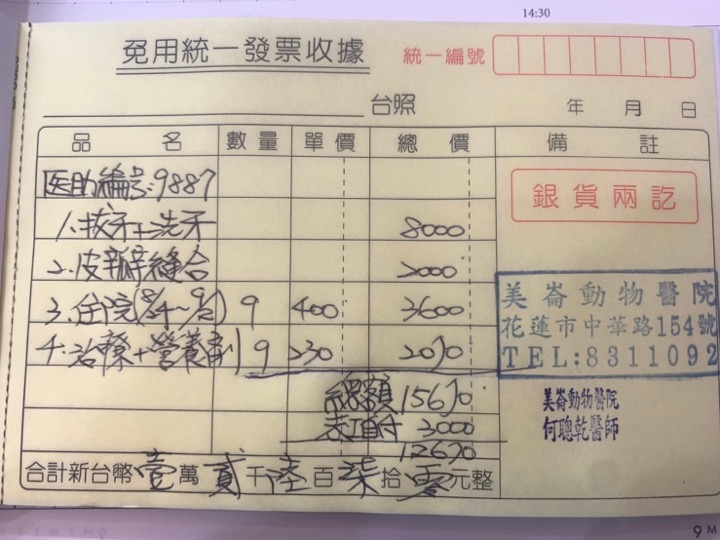 14:30
免用統一發票收據 統一編號
台照 年 月 日
品 名 數量 單價 總價 備註
医助編號:9887
銀貨兩訖
1.拔牙+洗牙 8000
2.皮瓣縫合 2000
3.住院(8/24~9/2) 9 400 3600
4.治療+營養劑 9 230 2070
美崙動物醫院
花蓮市中華路154號
TEL:8311092
總額 15670
預付 3000
12670
美崙動物醫院
何聰乾醫師
合計新台幣壹萬貳千陸百柒拾零元整
9 M